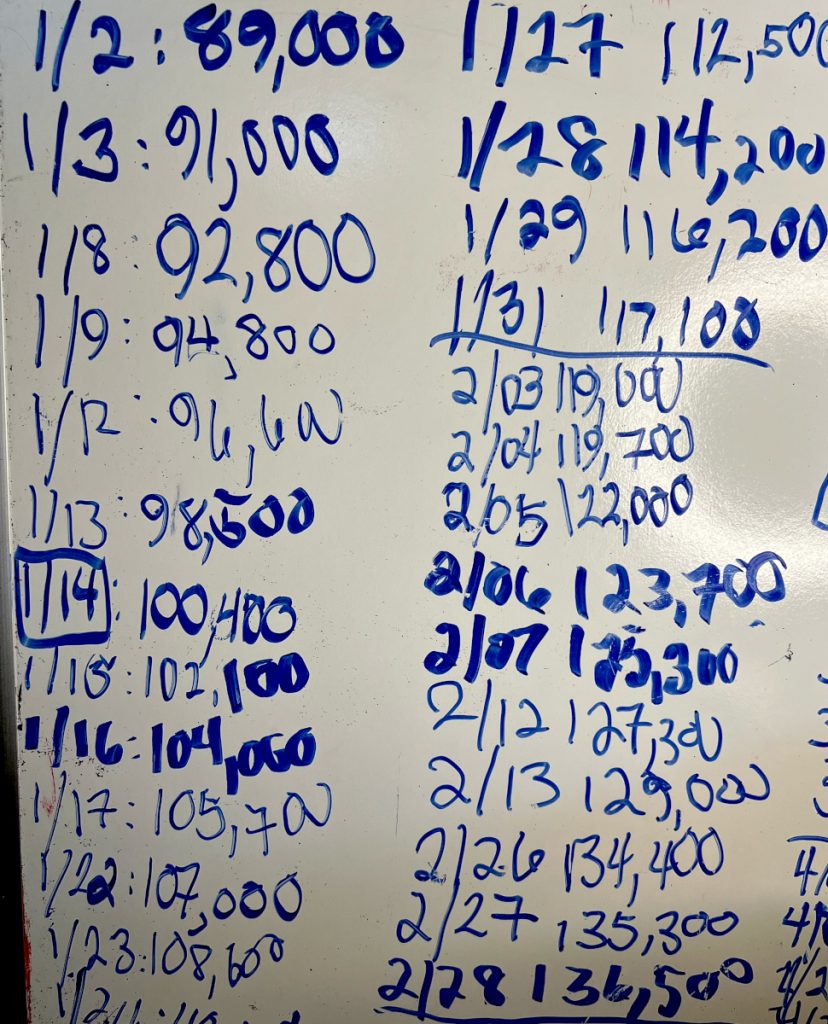 1/2: 89,000
1/3: 91,000
1/8: 92,800
1/9: 94,800
1/12: 96,600
1/13: 98,500
1/14: 100,400
1/15: 102,100
1/16: 104,000
1/17: 105,700
1/22: 107,000
1/23: 108,600
1/27 112,500
1/28 114,200
1/29 116,200
1/31 117,100
2/03 119,000
2/04 119,700
2/05 122,000
2/06 123,700
2/07 125,300
2/12 127,300
2/13 129,000
2/26 134,400
2/27 135,300
2/28 136,500